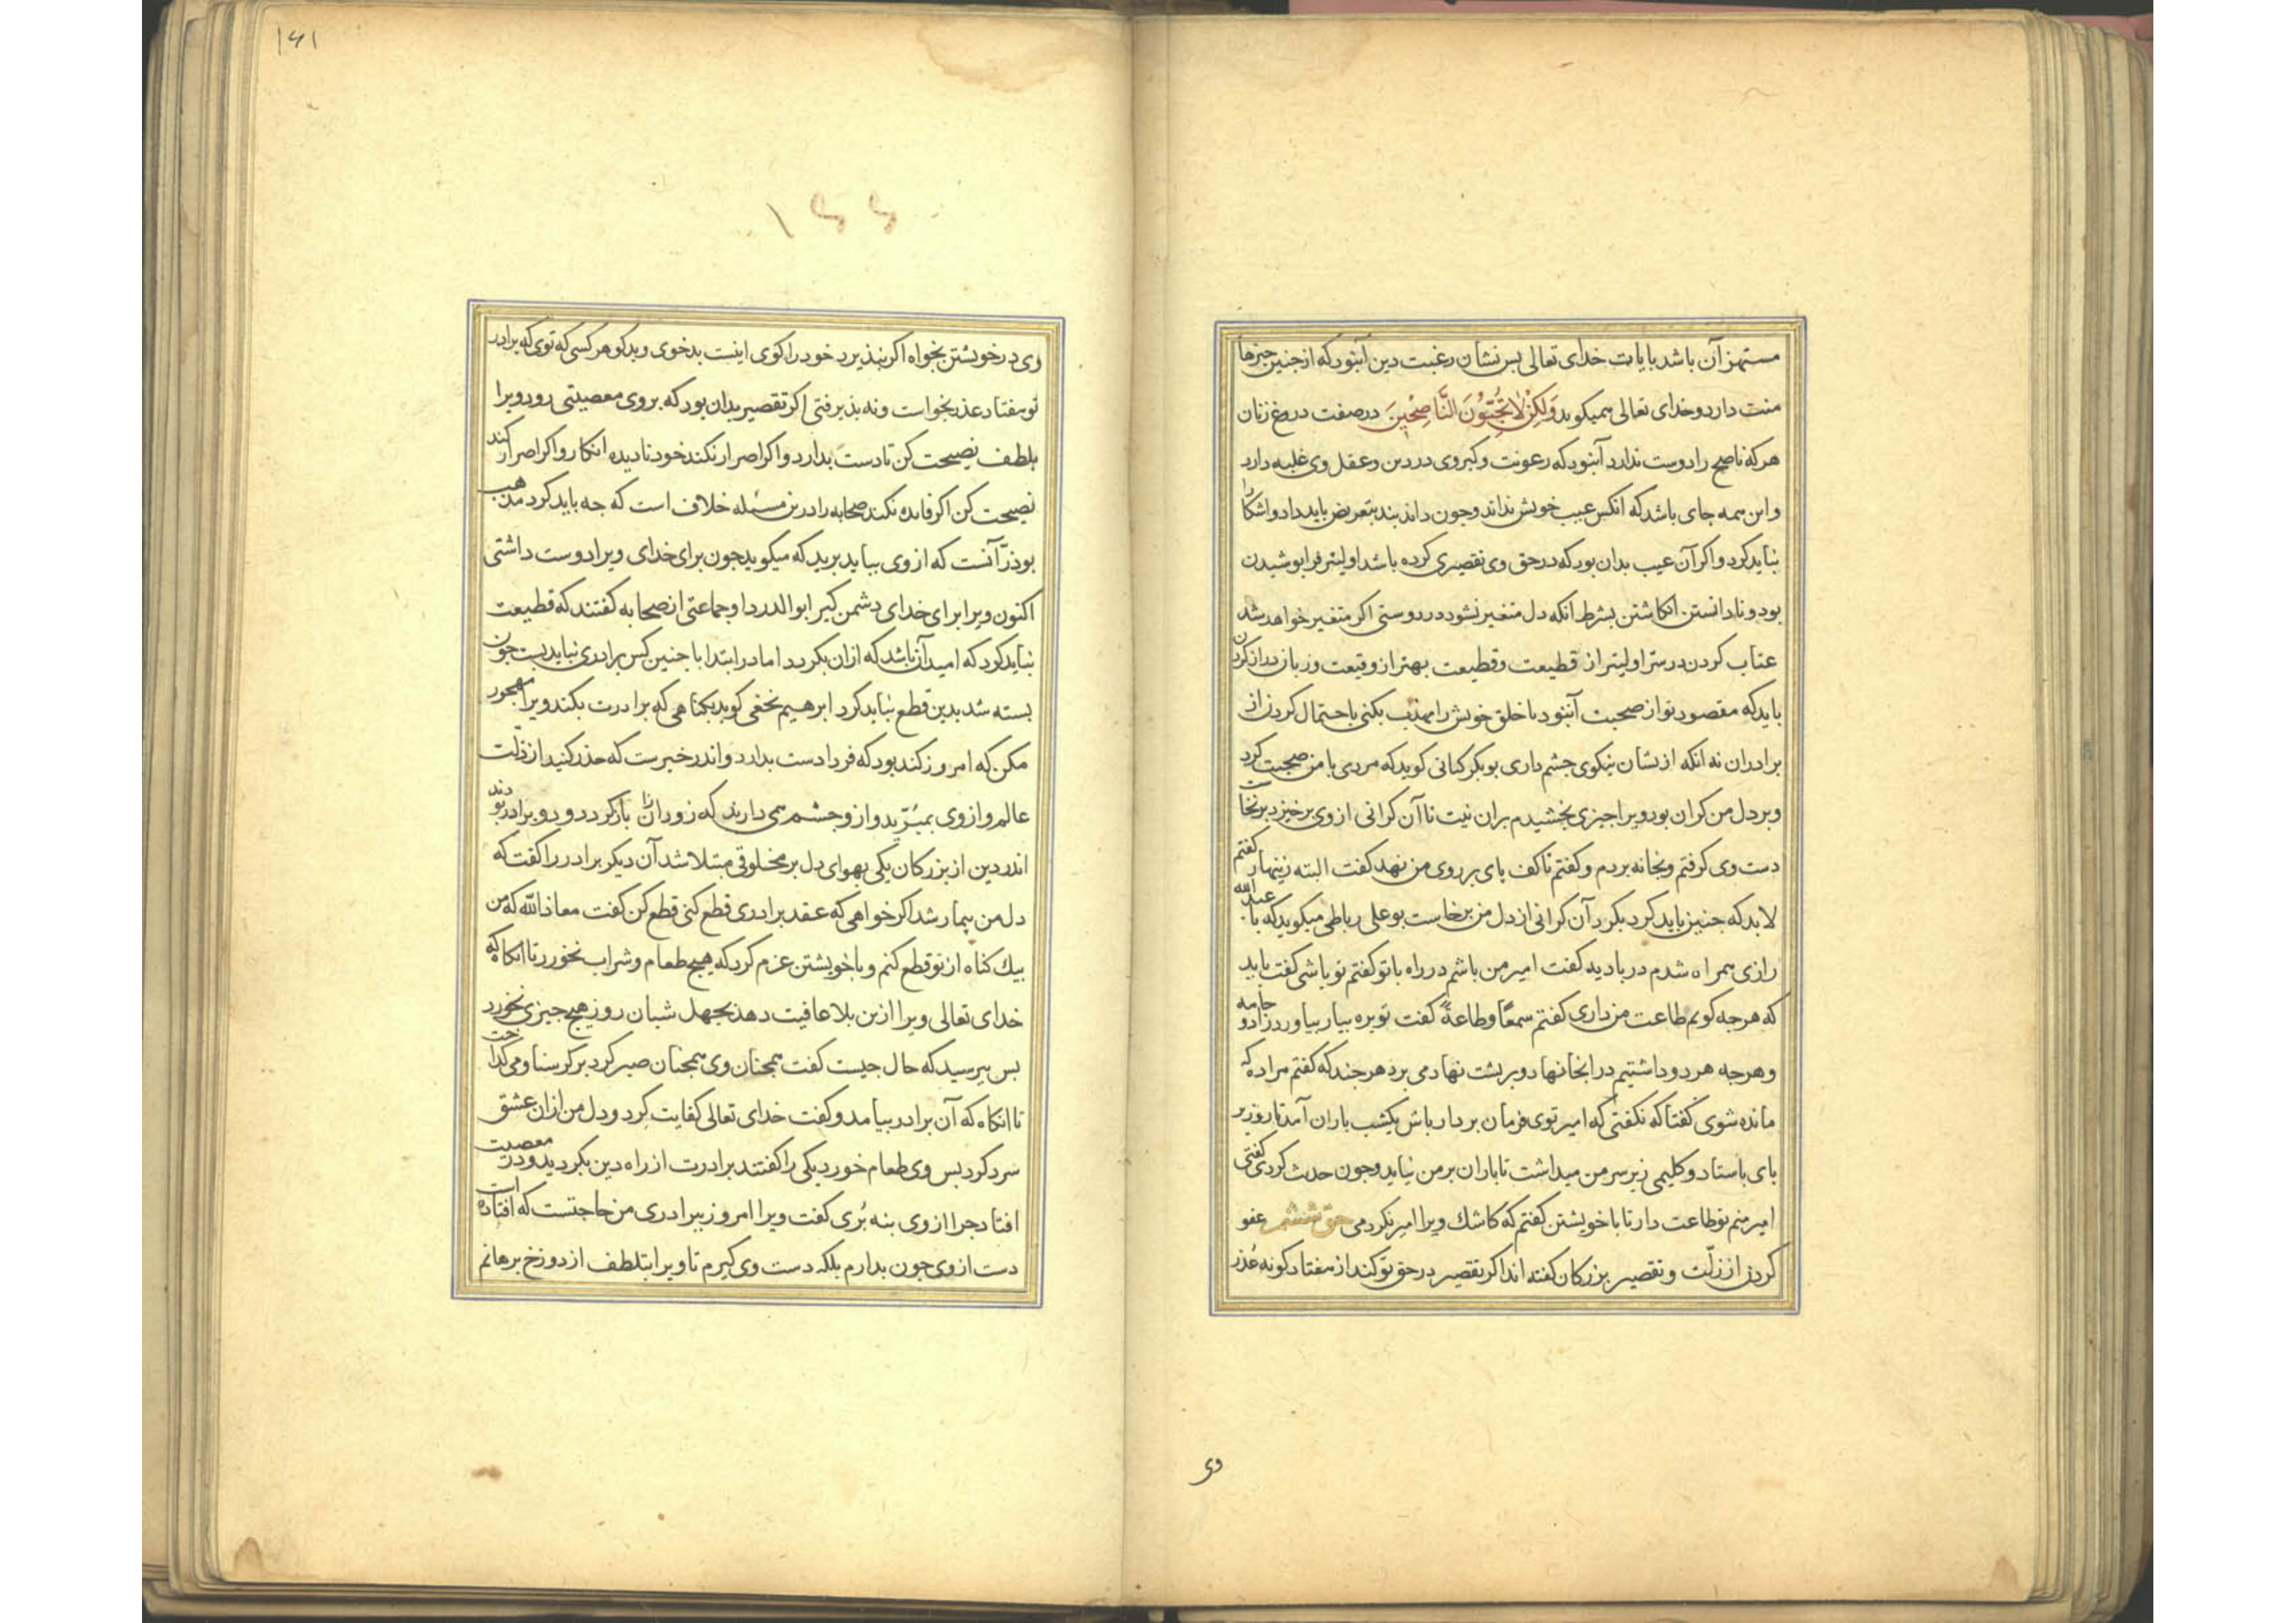 مستهزآن باشد بایات خدای تعالی بس نشان رغبت دین آنبود که از جنین جیزها
منت دارد و خدای تعالی همیکوید وَلَكِنْ لَا تُحِبُّوْنَ النَّاصِحِيْنَ در صفت دروغ زنان
هر که ناصح را دوست ندارد آنبود که رعونت و کبر وی در دین و عقل وی غلبه دارد
و این همه جای باشد که انکس عیب خویش نداند و جون داند بند بتعریض باید داد و اشکارا
نباید کرد و اکر آن عیب بدان بود که در حق وی تقصیری کرده باشد اولیتر فرا بوشیدن
بود و نادانستن انکاشتن بشرط انکه دل متغیر نشود در دوستی اکر متغیر خواهد شد
عتاب کردن در ستر اولیتر از قطیعت و قطیعت بهتر از وقیعت و زبان دراز کردن
باید که مقصود تو از صحبت آنبود تا خلق خویش را مهذب بکنی باحتمال کردن از
برادران نه انکه ازیشان نیکوی جشم داری بوبکر کتانی کوید که مردی با من صحبت کرد
و بر دل من کران بود ویرا جیزی بخشیدم بران نیت تا آن کرانی از وی برخیزد برنخاست
دست وی کرفتم و بخانه بردم و کفتم تا کف بای بر روی من نهد کفت البته زینهار کفتم
لابد که جنین باید کرد بکرد آن کرانی از دل من برخاست بوعلی رباطی میکوید که با عبدالله
رازی همراه شدم در بادیه کفت امیر من باشم در راه یا تو کفتم تو باشی کفت باید
که هرجه کویم طاعت من داری کفتم سمعًا وطاعةً کفت توبره بیار بیاوردم زاد و جامه
و هرجه هر دو داشتیم در انجا نهاد و بر بشت نهاد می برد هرجند که کفتم مرا ده که
مانده شوی کفتا که نکفتی که امیر توی فرمان بردار باش یکشب باران آمد تا روز بر
بای باستاد و کلیمی زیر سر من میداشت تا باران بر من نیاید و جون حدیث کردمی کفتی
امیر منم تو طاعت دار تا با خویشتن کفتم که کاشك ویرا امیر نکردمی حق ششم عفو
کردن از زلّت و تقصیر بزرکان کفته اند اکر تقصیر در حق تو کند از هفتاد کونه عُذر
وی
۱۶۱
۱۶۶
وی در خویشتن بخواه اکر نبذیرد خود را کوی اینست بدخوی و بدکوهر کسی که توی که برادر
تو هفتاد عذر بخواست و نه بذیرفتی اکر تقصیر بدان بود که بر وی معصیتی رود ویرا
بلطف نصیحت کن تا دست بدارد و اکر اصرار نکند خود نادیده انکار و اکر اصرار کند
نصیحت کن اکر فایده نکند صحابه را درین مسئله خلاف است که جه باید کرد مذهب
بوذرّ آنست که از وی بباید برید که میکوید جون برای خدای ویرا دوست داشتی
اکنون ویرا برای خدای دشمن کیر ابوالدردا و جماعتی از صحابه کفتند که قطیعت
نباید کرد که امید آن باشد که ازان بکردد اما در ابتدا با جنین کس برادری نباید بست جون
بسته شد بدین قطع نباید کرد ابرهیم نخعی کوید بکناهی که برادرت بکند ویرا مهجور
مکن که امروز کند بود که فردا دست بدارد و اندر خبرست که حذر کنید از زلّت
عالم و از وی بمبُرّید و ازو جشم می دارید که زود ازان بازکردد و دو برادر بودند
اندر دین از بزرکان یکی بهوای دل بر مخلوقی مبتلا شد آن دیکر برادر را کفت که
دل من بیمار شد اکر خواهی که عقد برادری قطع کنی قطع کن کفت معاذ الله که من
بیك کناه از تو قطع کنم و با خویشتن عزم کرد که هیج طعام و شراب نخورد تا انکاه که
خدای تعالی ویرا ازین بلا عافیت دهد بجهل شبان روز هیج جیزی نخورد
بس ببرسید که حال جیست کفت همجنان وی همجنان صبر کرد بر کرسنا و می کداخت
تا انکاه که آن برادر بیامد و کفت خدای تعالی کفایت کرد و دل من ازان عشق
سرد کرد بس وی طعام خورد یکی را کفتند برادرت از راه دین بکردید و در معصیت
افتاد جرا از وی بنه بُری کفت ویرا امروز ببرادری من حاجتست که افتاده است
دست از وی جون بدارم بلکه دست وی کیرم تا ویرا بتلطف از دوزخ برهانم